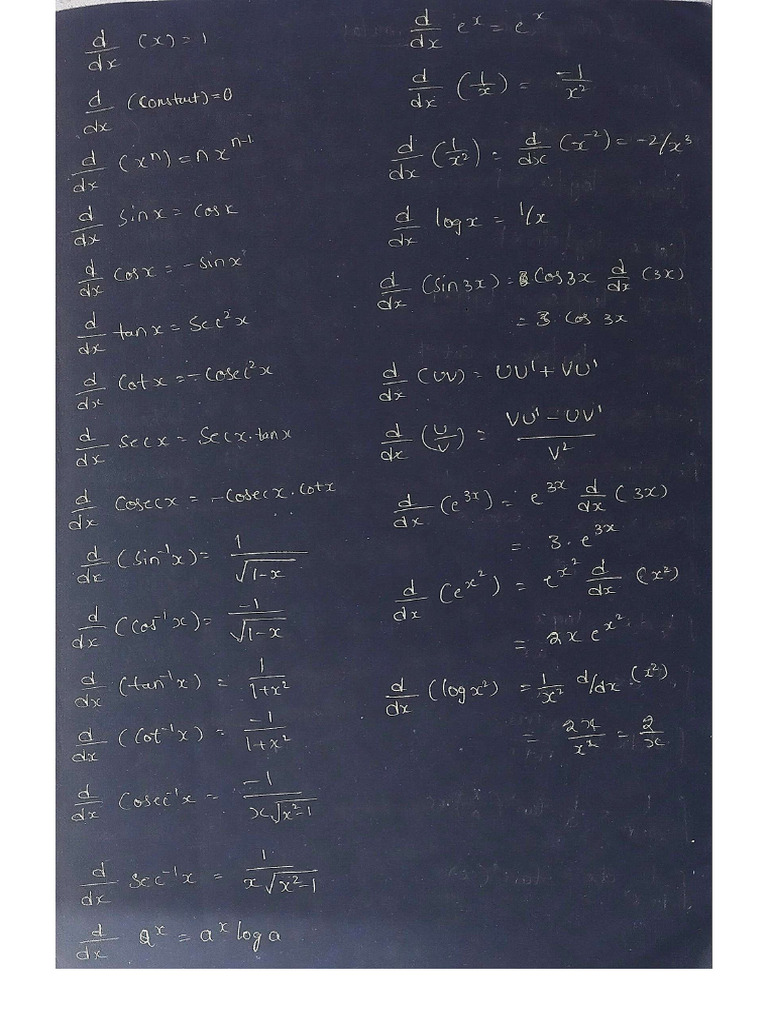 d/dx (x) = 1
d/dx (constant) = 0
d/dx (xⁿ) = n xⁿ⁻¹
d/dx sinx = cosx
d/dx cosx = -sinx
d/dx tanx = sec²x
d/dx cotx = -cosec²x
d/dx secx = secx.tanx
d/dx cosecx = -cosecx.cotx
d/dx (sin⁻¹x) = 1/√(1-x)
d/dx (cos⁻¹x) = -1/√(1-x)
d/dx (tan⁻¹x) = 1/(1+x²)
d/dx (cot⁻¹x) = -1/(1+x²)
d/dx cosec⁻¹x = -1/(x√(x²-1))
d/dx sec⁻¹x = 1/(x√(x²-1))
d/dx aˣ = aˣ log a
d/dx eˣ = eˣ
d/dx (1/x) = -1/x²
d/dx (1/x²) = d/dx (x⁻²) = -2/x³
d/dx logx = 1/x
d/dx (sin3x) = cos3x d/dx (3x)
= 3.cos 3x
d/dx (UV) = UV' + VU'
d/dx (U/V) = (VU' - UV')/V²
d/dx (e³ˣ) = e³ˣ d/dx (3x)
= 3.e³ˣ
d/dx (e^x²) = e^x² d/dx (x²)
= 2x e^x²
d/dx (log x²) = 1/x² d/dx (x²)
= 2x/x² = 2/x